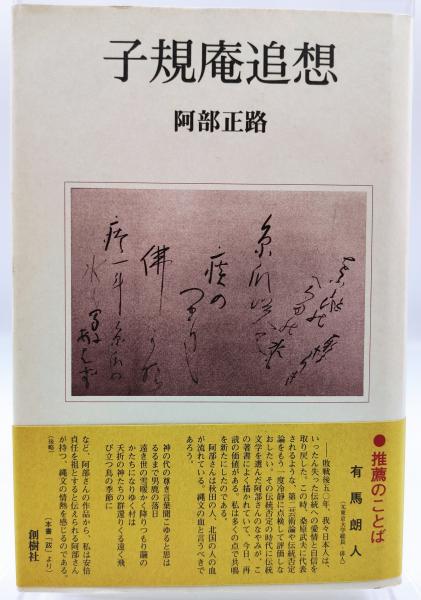 子規庵追想
阿部正路
糸瓜咲て
痰の
つまりし
佛かな
痰一斗糸瓜の
水も間に
あはず
●推薦のことば
有馬朗人
（元東京大学総長 俳人）
――敗戦後五〇年、我々日本人は、
いったん失った伝統への愛情と自信を
取り戻した。この時、桑原武夫に代表
されるような、第二芸術論や伝統否定
論をもう一度冷静に点検して評価しな
おしたい。その伝統否定の時代に伝統
文学を選んだ阿部さんのなやみが、こ
の著書によく描かれていて、今日、再
読の価値がある。私は多くの点で共鳴
を新たにしたのである。
阿部さんは秋田の人、北国の人の血
が流れている。縄文の血と言うべきで
あろう。
神の代の尊き言葉聞こゆると思は
るるまで男鹿の落日
遠き世の雪暖かく降りつもり繭の
かたちになりゆく村は
夭折の神たちの群還りくる遠く飛
び立つ鳥の季節に
など、阿部さんの作品から、私は安倍
貞任を祖とすると伝えられる阿部さん
が持つ、縄文の情熱を感じるのである。
（後略）
（本書「跋」より）
創樹社